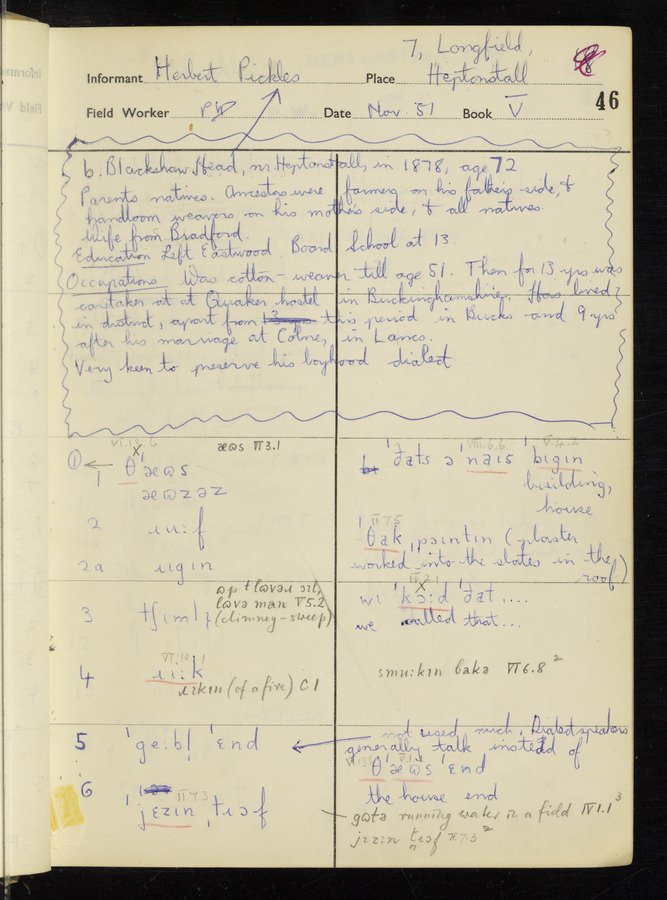 7, Longfield,
Informant Herbert Pickles Place Heptonstall
46
Field Worker PW Date Nov '51 Book V
b. Blackshaw Head, nr Heptonstall, in 1878, age 72
Parents natives. Ancestors were farmers on his father's side, &
handloom weavers on his mother's side, & all natives.
Wife from Bradford.
Education Left Eastwood Board School at 13.
Occupations Was cotton-weaver till age 51. Then for 13 yrs was
caretaker at at Quaker hostel in Buckinghamshire. Has lived
in district, apart from this period in Bucks and 9 yrs
after his marriage at Colne, in Lancs.
Very keen to preserve his boyhood dialect
VI.13.6 æɷs V3.1
① 1 θ'æɷs
æɷzəz
2 ɹu:f
2a ɹigin
3 tʃimlɪ
lɷvə man V5.2
(chimney-sweep)
4 ɹi:k
ɹikin (of a fire) C1
5 'ge:bl 'ɛnd
6 'jɛzin ˌtɹɔf
II 7.3
VIII.6.6
b 'ðats ə 'nais 'bigin
building,
house
II 7.5
'θak ˌpɔintin (plaster
worked into the slates in the
roof)
wi 'kɔ:d 'ðat ....
we called that ...
smu:kin baka VI 6.8 2
not used much. Dialect speakers
generally talk instead of
θ'æɷs 'ɛnd
the house end
gɷtə running water in a field IV 1.1 3
jɪzɪn tɹɔf II 7.3 2